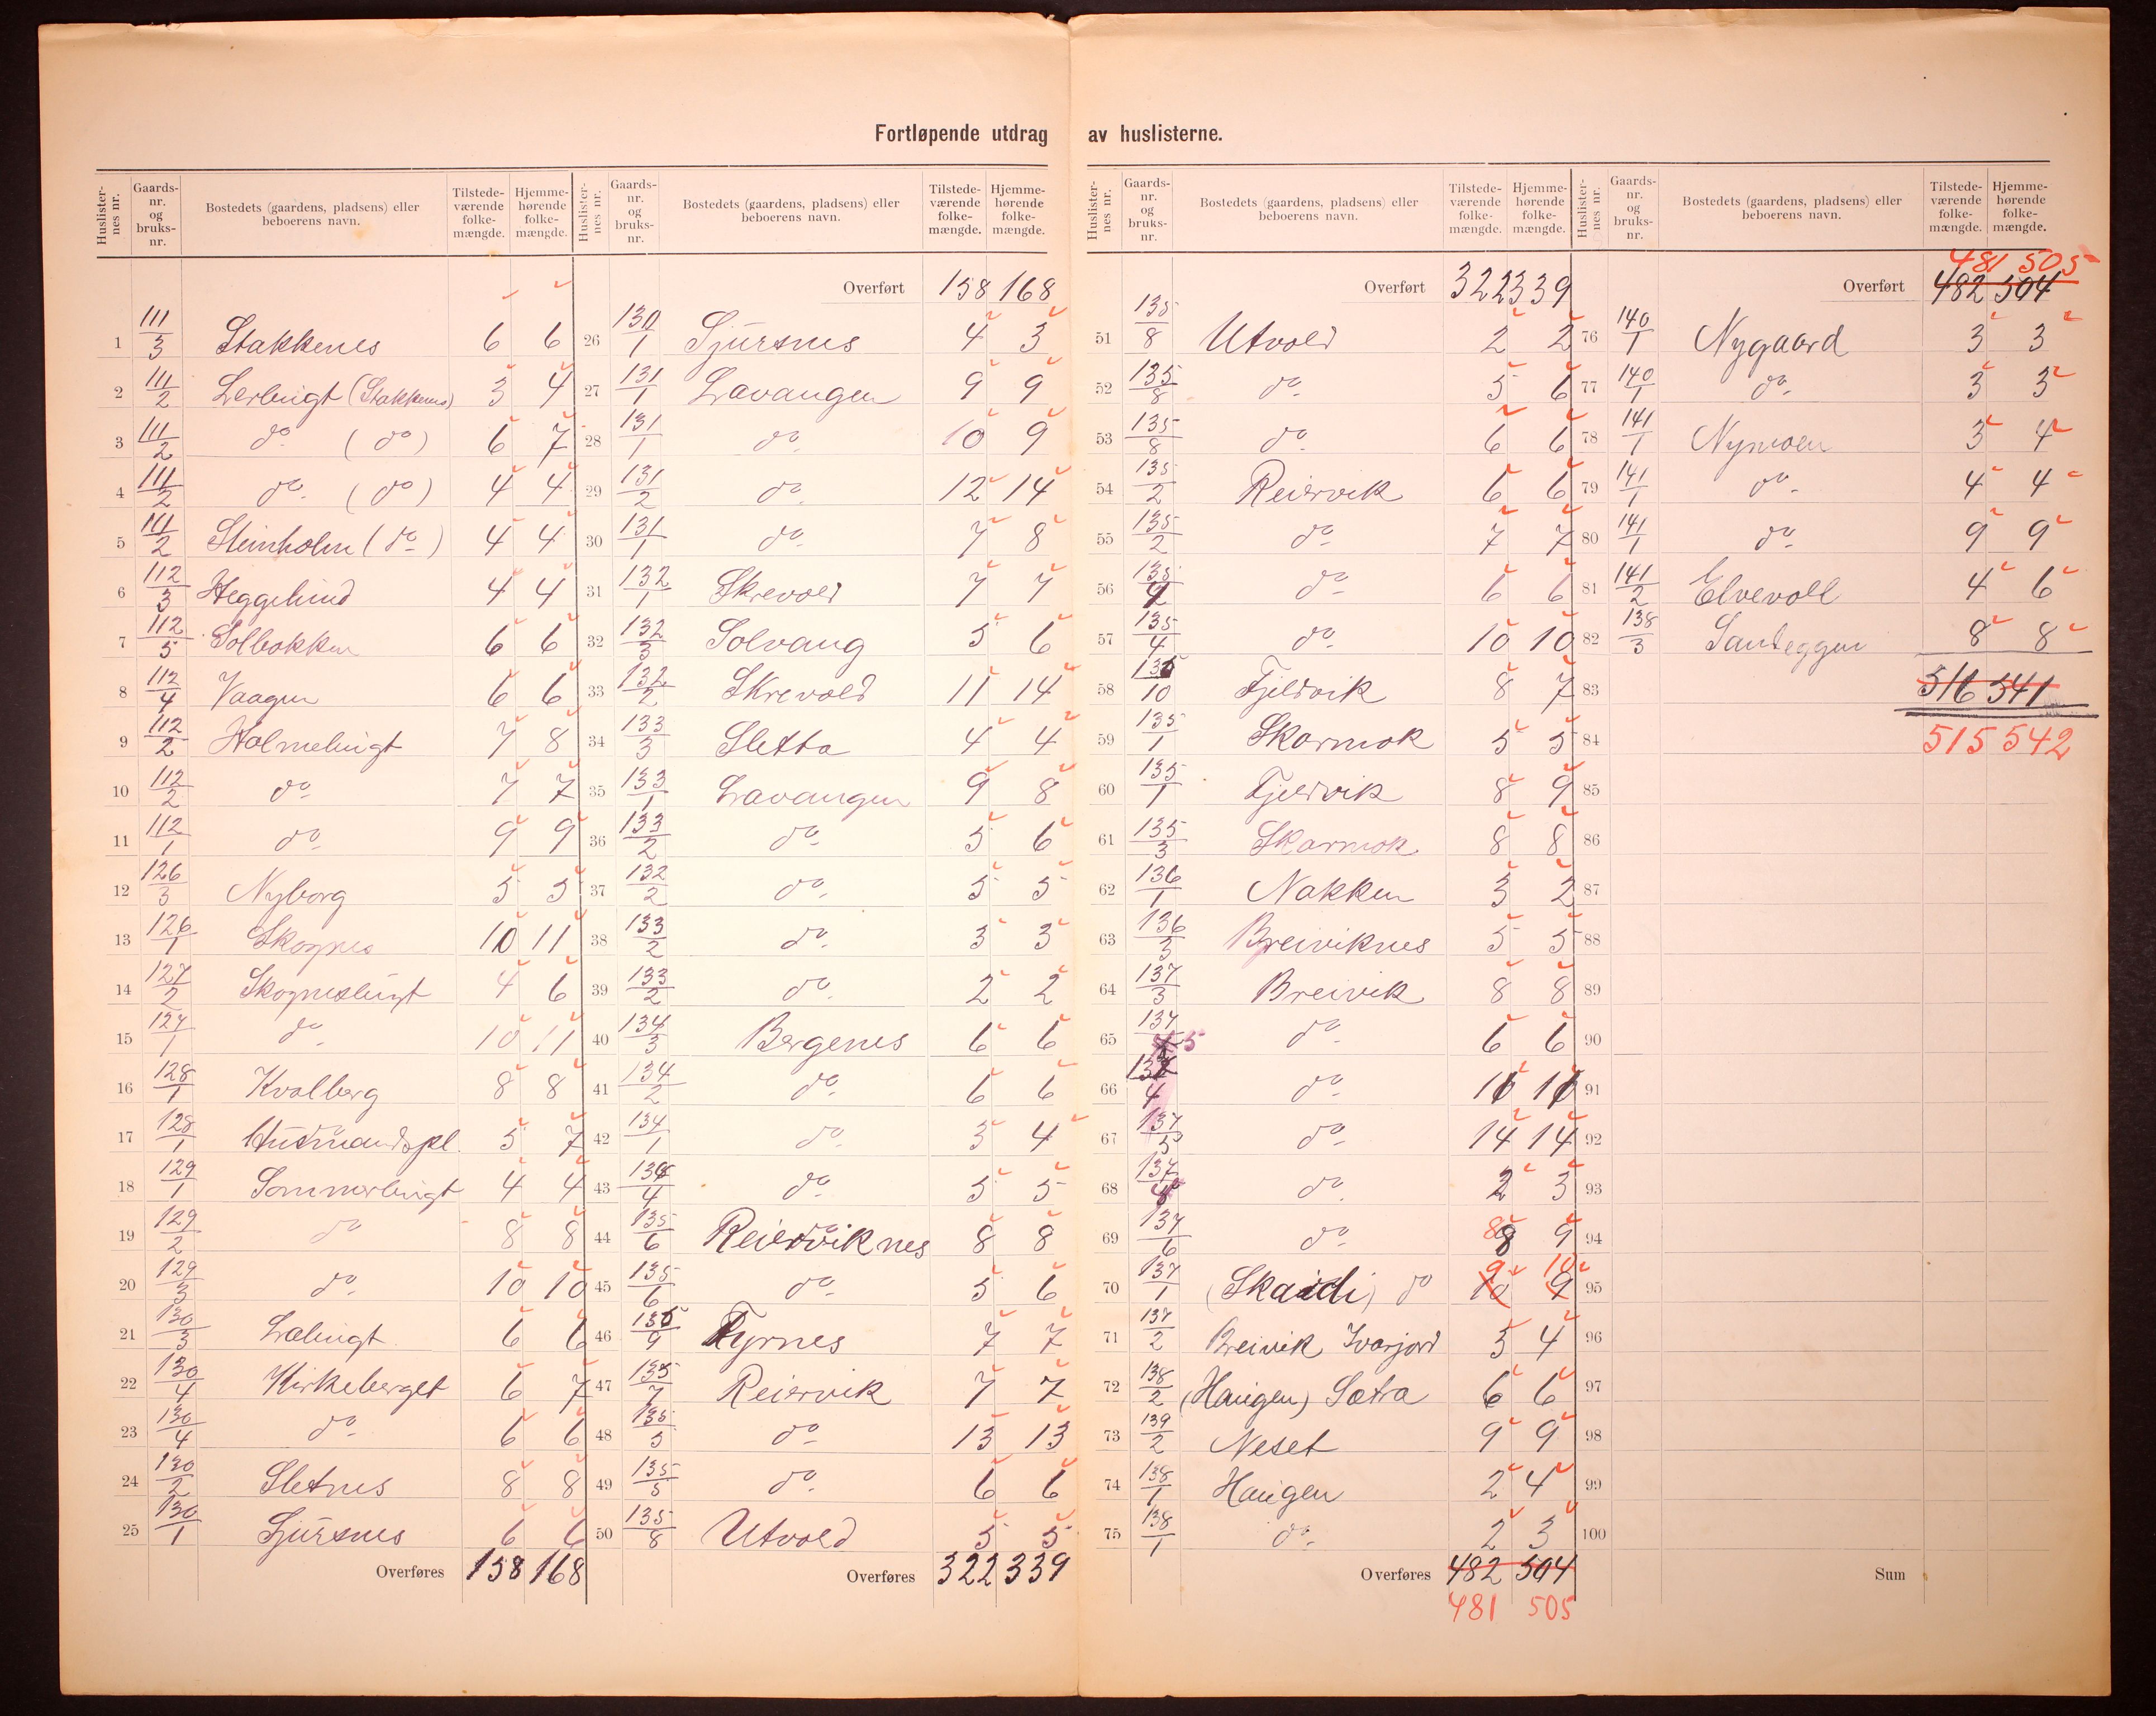 Fortløpende utdrag av huslisterne.
Huslister-nes nr. Gaards-nr. og bruks-nr. Bostedets (gaardens, pladsens) eller beboerens navn. Tilstede-værende folke-mængde. Hjemme-hørende folke-mængde.
1 111/3 Stakkenes 6 6
2 111/2 Lerbugt (Stakkenes) 3 4
3 111/2 do (do) 6 7
4 111/2 do (do) 4 4
5 111/2 Steinholm (do) 4 4
6 112/3 Heggelund 4 4
7 112/5 Solbakken 6 6
8 112/4 Vaagen 6 6
9 112/2 Holmebugt 7 8
10 112/2 do 7 7
11 112/1 do 9 9
12 126/3 Nyborg 5 5
13 126/1 Skognes 10 11
14 127/2 Skognesbugt 4 6
15 127/1 do 10 11
16 128/1 Kvalberg 8 8
17 128/1 Husmandspl. 5 7
18 129/1 Sommerbugt 4 4
19 129/2 do 8 8
20 129/3 do 10 10
21 130/3 Labugt 6 6
22 130/4 Kirkeberget 6 7
23 130/4 do 6 6
24 130/2 Sletnes 8 8
25 130/1 Sjursnes 6 6
Overføres 158 168
Huslister-nes nr. Gaards-nr. og bruks-nr. Bostedets (gaardens, pladsens) eller beboerens navn. Tilstede-værende folke-mængde. Hjemme-hørende folke-mængde.
Overført 158 168
26 130/1 Sjursnes 4 3
27 131/1 Lavangen 9 9
28 131/1 do 10 9
29 131/2 do 12 14
30 131/1 do 7 8
31 132/1 Skrevold 7 7
32 132/3 Solvang 5 6
33 132/2 Skrevold 11 14
34 133/3 Sletta 4 4
35 133/1 Lavangen 9 8
36 133/2 do 5 6
37 132/2 do 5 5
38 133/2 do 3 3
39 133/2 do 2 2
40 134/3 Bergenes 6 6
41 134/2 do 6 6
42 134/1 do 3 4
43 134/4 do 5 5
44 135/6 Reierviknes 8 8
45 135/6 do 5 6
46 135/9 Fyrnes 7 7
47 135/7 Reiervik 7 7
48 135/5 do 13 13
49 135/5 do 6 6
50 135/8 Utvold 5 5
Overføres 322 339
Huslister-nes nr. Gaards-nr. og bruks-nr. Bostedets (gaardens, pladsens) eller beboerens navn. Tilstede-værende folke-mængde. Hjemme-hørende folke-mængde.
Overført 322 339
51 135/8 Utvold 2 2
52 135/8 do 5 6
53 135/8 do 6 6
54 135/2 Reiervik 6 6
55 135/2 do 7 7
56 135 do 6 6
57 135/4 do 10 10
58 135/10 Fjeldvik 8 7
59 135/1 Skarmok 5 5
60 135/1 Fjeldvik 8 9
61 135/3 Skarmok 8 8
62 136/1 Nakken 3 2
63 136/3 Breiviknes 5 5
64 137/3 Breivik 8 8
65 137/5 do 6 6
66 137/4 do
67 137/5 do 14 14
68 137 do 2 3
69 137/6 do 8 8 9
70 137/1 (Skaidi) do 10 9 9 10
71 137/2 Breivik Ivarjord 3 4
72 138/2 (Haugen) Sætra 6 6
73 139/2 Neset 9 9
74 138/1 Haugen 2 4
75 138/1 do 2 3
Overføres 482 504
481 505
Huslister-nes nr. Gaards-nr. og bruks-nr. Bostedets (gaardens, pladsens) eller beboerens navn. Tilstede-værende folke-mængde. Hjemme-hørende folke-mængde.
481 505
Overført 482 504
76 140/1 Nygaard 3 3
77 140/1 do 3 3
78 141/1 Nymoen 3 4
79 141/1 do 4 4
80 141/1 do 9 9
81 141/2 Elvevoll 4 6
82 138/3 Sandeggen 8 8
83 516 541
84 515 542
85
86
87
88
89
90
91
92
93
94
95
96
97
98
99
100
Sum